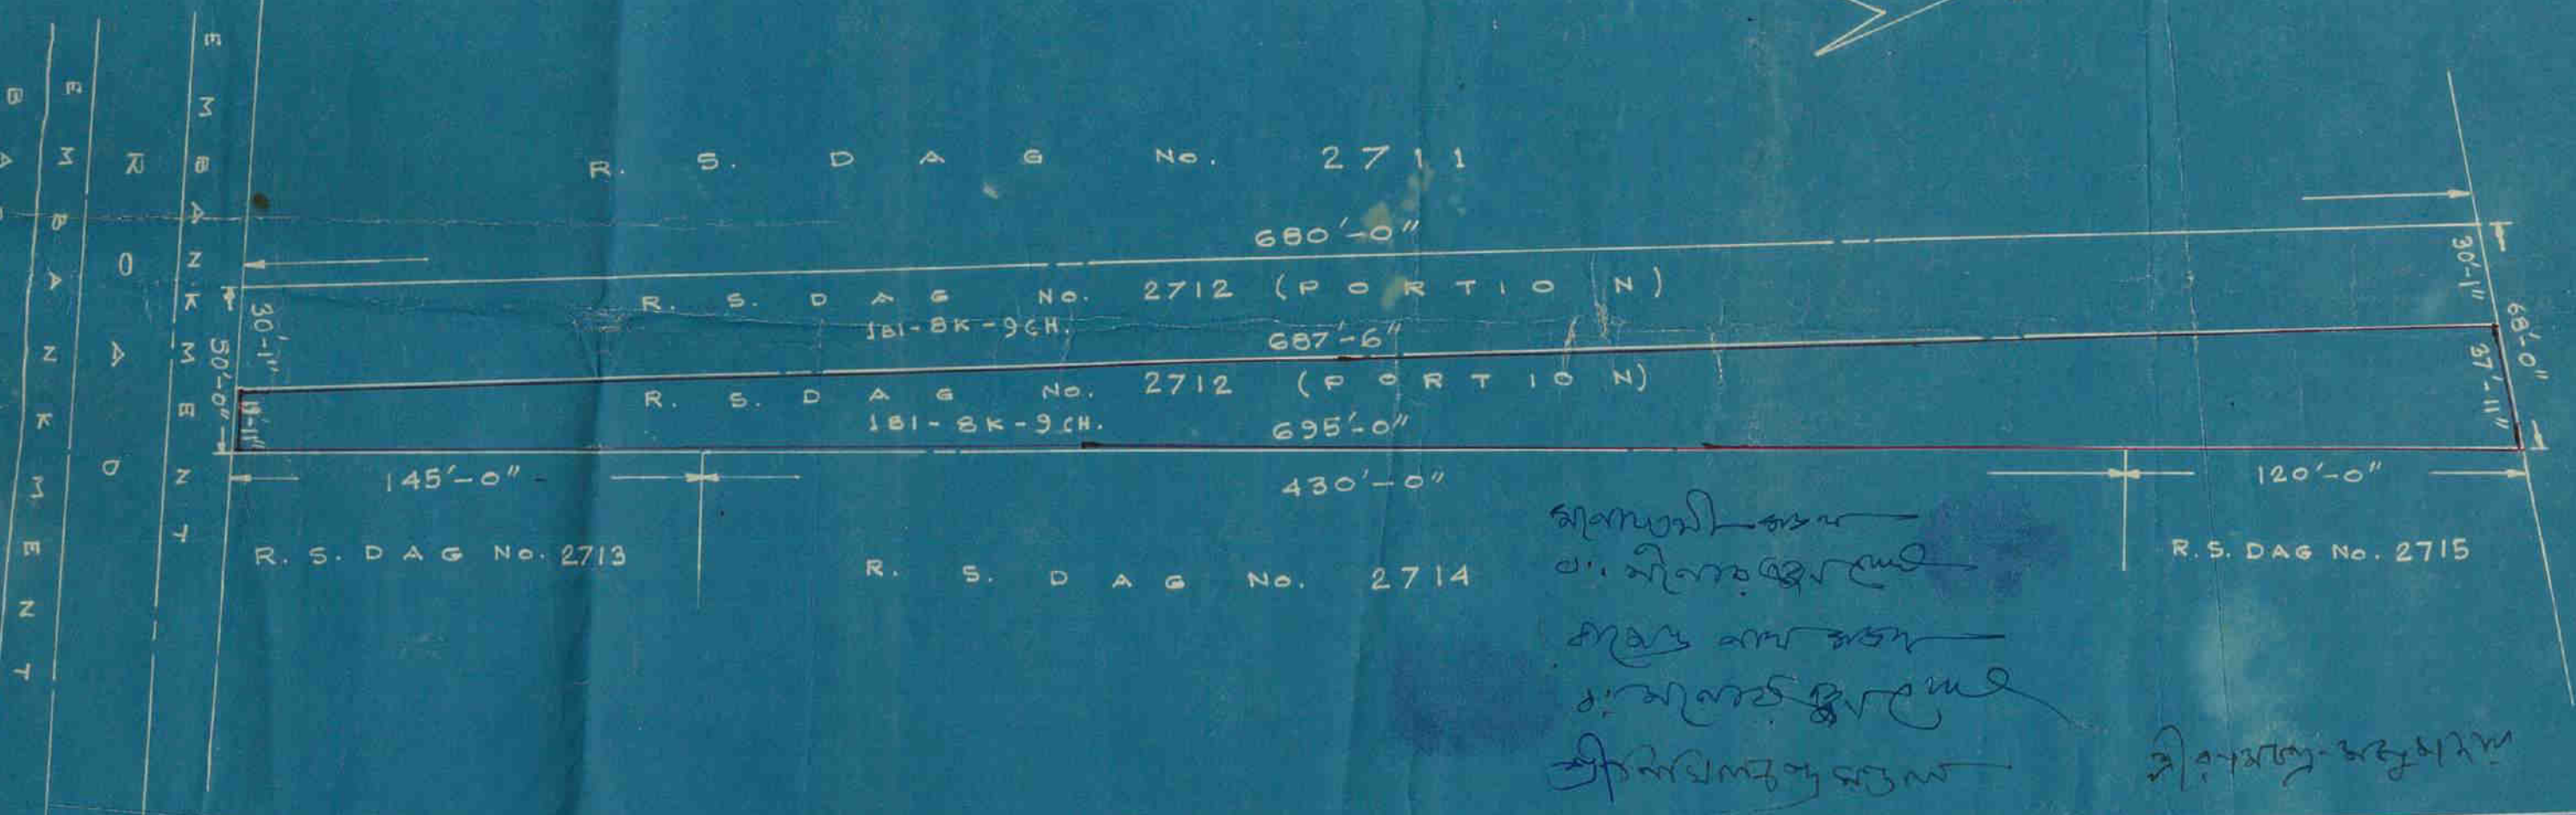 EMBANKMENT
ROAD
EMBANKMENT
R. S. DAG No. 2711
680'-0"
R. S. DAG No. 2712 (PORTION)
1BI-8K-9CH.
687'-6"
R. S. DAG No. 2712 (PORTION)
1BI-8K-9CH.
695'-0"
30'-1"
50'-0"
19'-11"
30'-1"
68'-0"
37'-11"
145'-0"
430'-0"
120'-0"
R. S. DAG No. 2713
R. S. DAG No. 2714
R. S. DAG No. 2715
শ্রী নিখিলচন্দ্র মণ্ডল